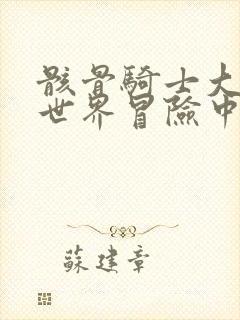 骸骨騎士大
世界冒險中
蘇建章